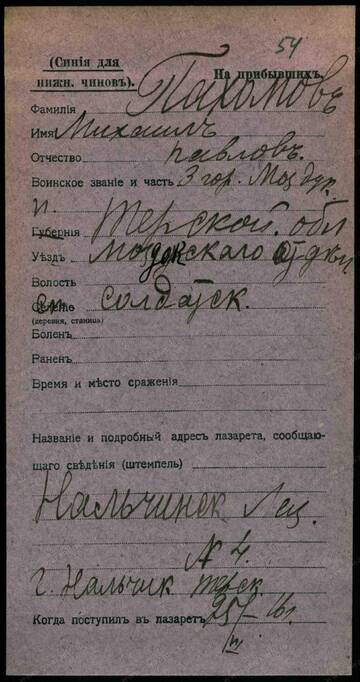 54
(Синія для нижн. чиновъ).
На прибывшихъ.
Фамилія Пахомовъ
Имя Михаилъ
Отчество павловъ.
Воинское званіе и часть 3 гор. Моздок.
п.
Губернія Терской. обл
Уѣздъ моздокскаго отдѣл
Волость
Селеніе ст. солдатск.
(деревня, станица)
Боленъ
Раненъ
Время и мѣсто сраженія
Названіе и подробный адресъ лазарета, сообщаю-
щаго свѣдѣнія (штемпель)
Нальчинск Лаз.
№ 4.
г. Нальчик терск.
Когда поступилъ въ лазаретъ 25/III–16г.